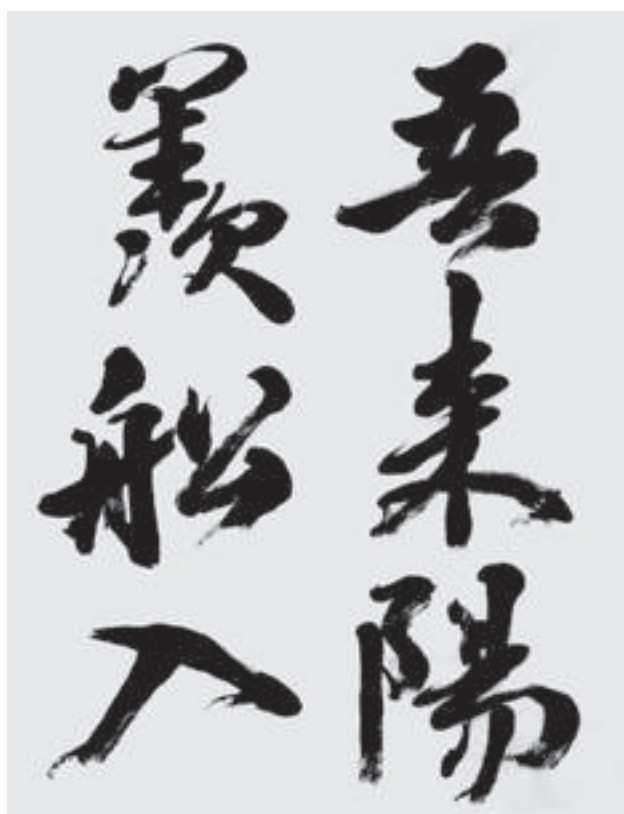 吾來陽
羨船入